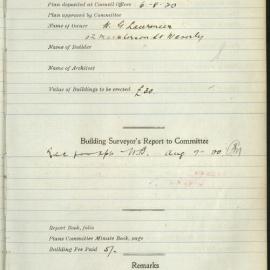 Plan deposited at Council Offices 6-8-20
Plan approved by Committee
Name of Owner H. G. Laurence
Henderson St Waverly
Name of Builder
Name of Architect
Value of Buildings to be erected £20
Building Surveyor's Report to Committee
Aug
Report Book, folio
Plans Committee Minute Book, page
Building Fee Paid 5/-
Remarks